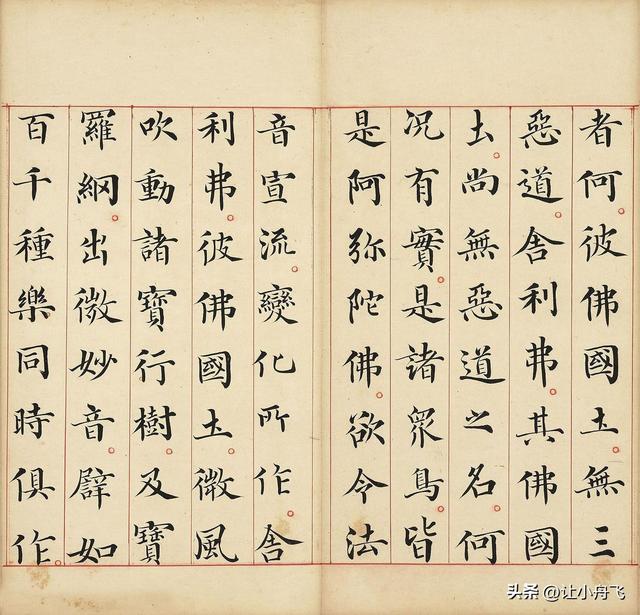 者何。彼佛國土。無三
惡道。舍利弗。其佛國
土。尚無惡道之名。何
況有實。是諸眾鳥。皆
是阿弥陀佛。欲令法
音宣流。變化所作。舍
利弗。彼佛國土。微風
吹動諸寶行樹。及寶
羅網。出微妙音。辟如
百千種樂同時俱作。
头条 @让小舟飞